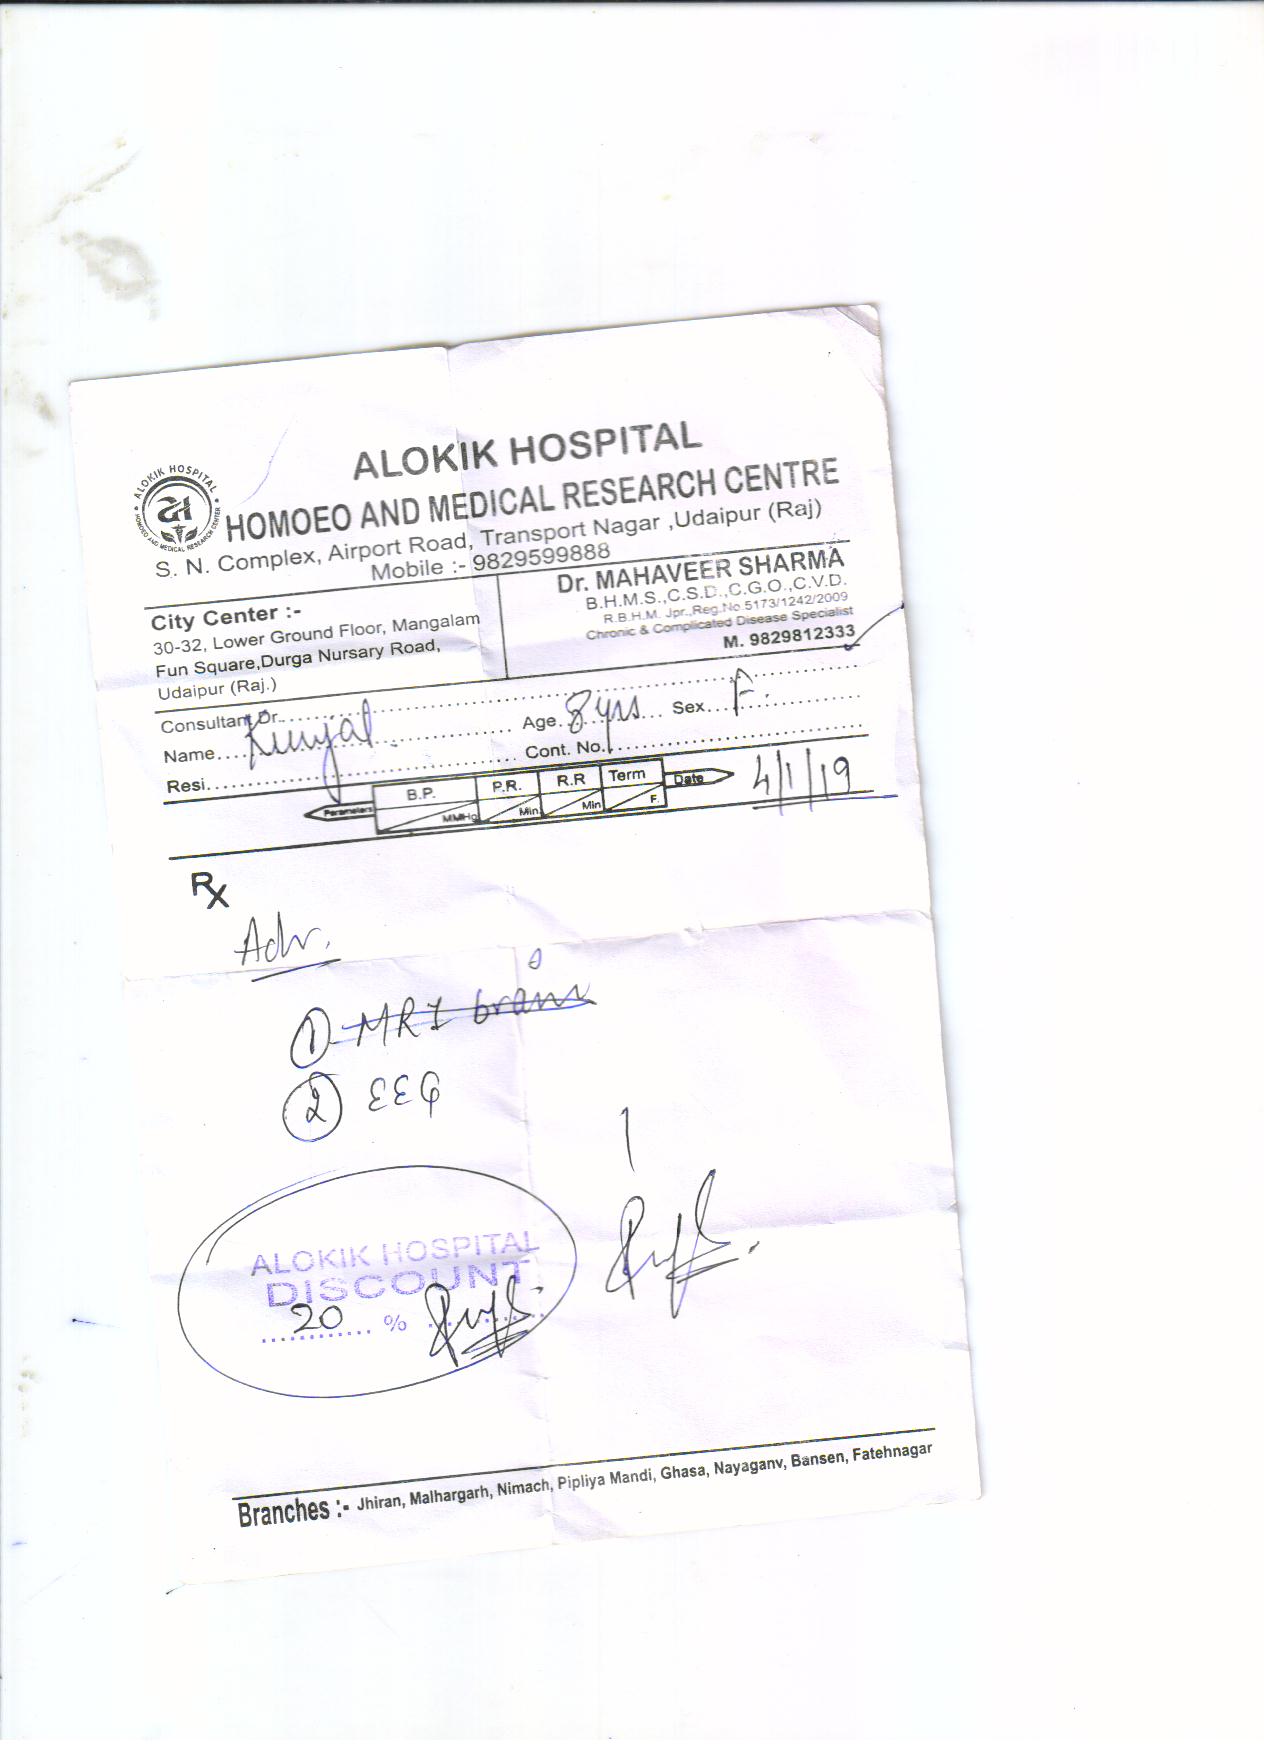 ALOKIK HOSPITAL
HOMOEO AND MEDICAL RESEARCH CENTRE
S. N. Complex, Airport Road, Transport Nagar ,Udaipur (Raj)
Mobile :- 9829599888
ALOKIK HOSPITAL
HOMOEO AND MEDICAL RESEARCH CENTER
City Center :-
30-32, Lower Ground Floor, Mangalam
Fun Square,Durga Nursary Road,
Udaipur (Raj.)
Dr. MAHAVEER SHARMA
B.H.M.S.,C.S.D.,C.G.O.,C.V.D.
R.B.H.M. Jpr.,Reg.No.5173/1242/2009
Chronic & Complicated Disease Specialist
M. 9829812333
Consultant Dr.
Name Kunjal Age 8 yrs Sex F.
Resi. Cont. No.
Parameters B.P. MMHg P.R. Min R.R Min Term F. Date 4/1/19
Rx
Adv.
1 MRI brain
2 EEG
ALOKIK HOSPITAL
DISCOUNT
20 %
Branches :- Jhiran, Malhargarh, Nimach, Pipliya Mandi, Ghasa, Nayaganv, Bansen, Fatehnagar